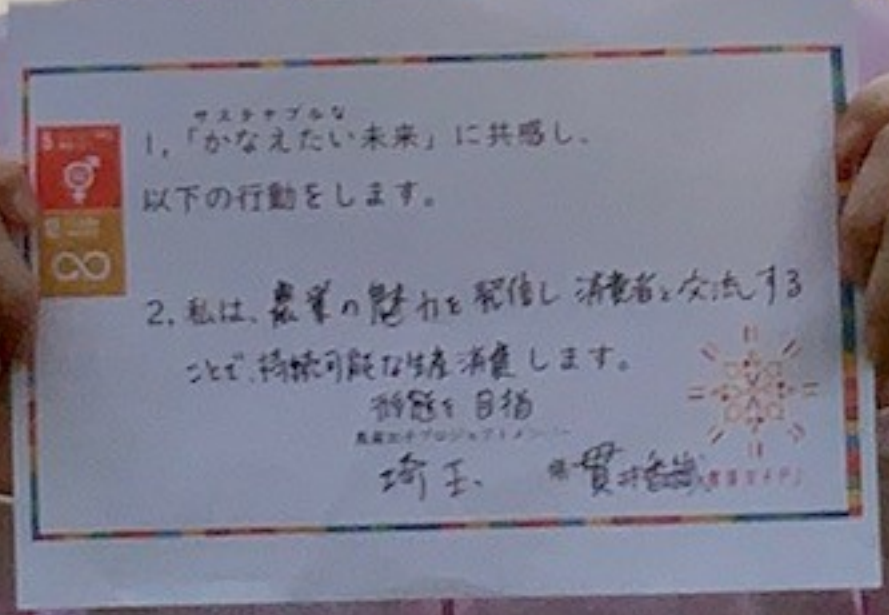 サステナブルな
1,「かなえたい未来」に共感し、
以下の行動をします。
2. 私は、農業の魅力を発信し 消費者と交流する
ことで、持続可能な生産消費 します。
形態を 目指
農業女子プロジェクトメンバー
埼玉 県 貫井香織
農業女子PJ
5
12